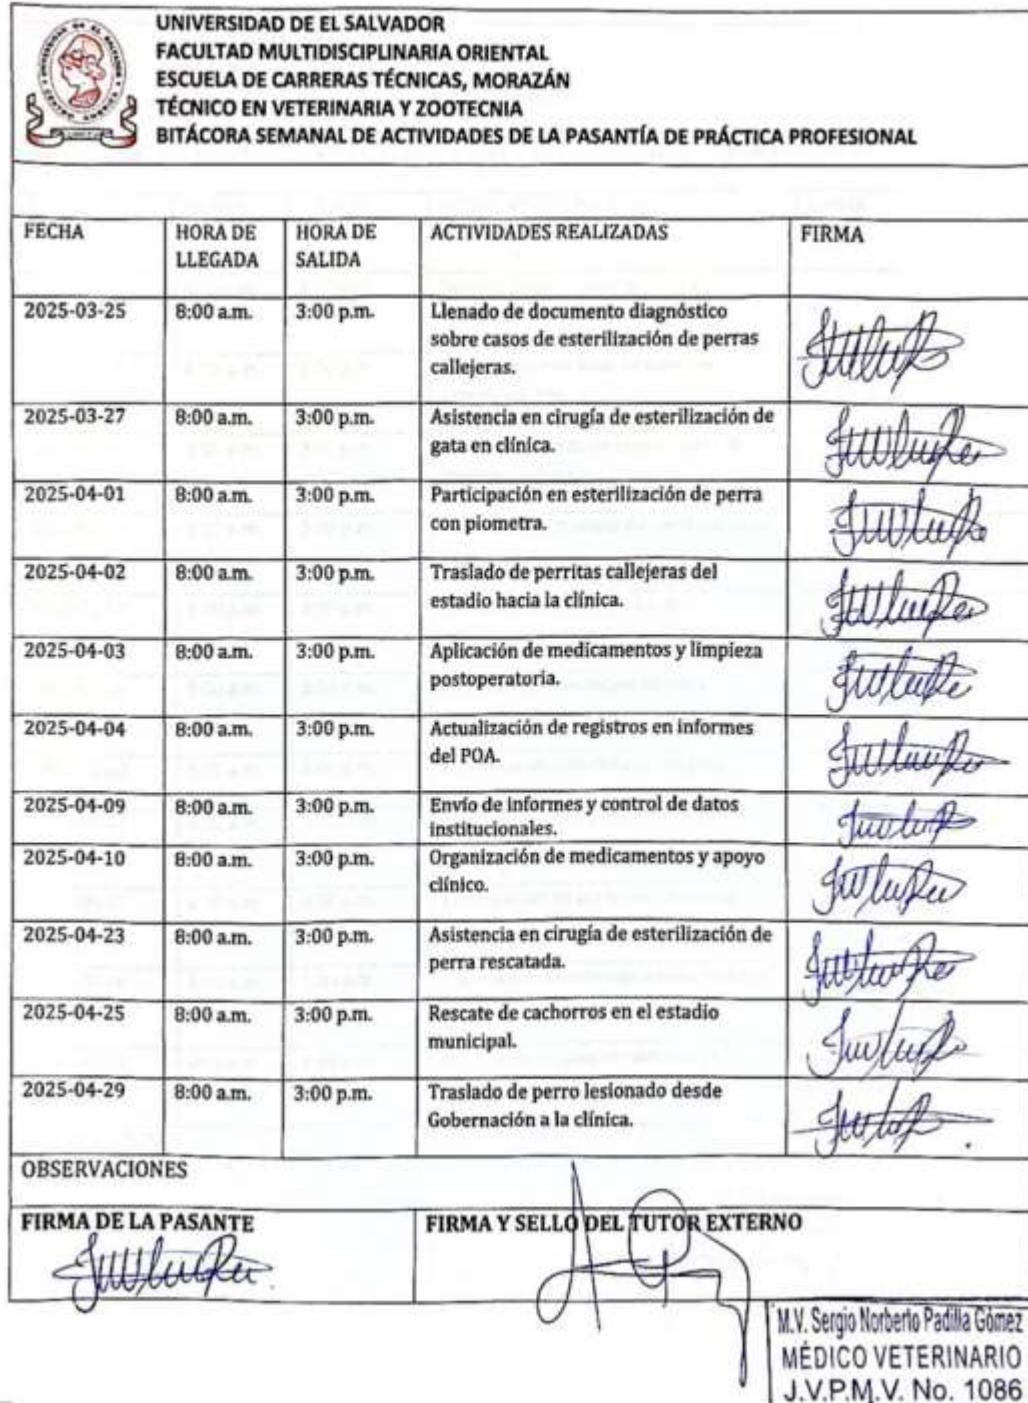 UNIVERSIDAD DE EL SALVADOR
FACULTAD MULTIDISCIPLINARIA ORIENTAL
ESCUELA DE CARRERAS TÉCNICAS, MORAZÁN
TÉCNICO EN VETERINARIA Y ZOOTECNIA
BITÁCORA SEMANAL DE ACTIVIDADES DE LA PASANTÍA DE PRÁCTICA PROFESIONAL
FECHA HORA DE LLEGADA HORA DE SALIDA ACTIVIDADES REALIZADAS FIRMA
2025-03-25 8:00 a.m. 3:00 p.m. Llenado de documento diagnóstico
sobre casos de esterilización de perras
callejeras.
2025-03-27 8:00 a.m. 3:00 p.m. Asistencia en cirugía de esterilización de
gata en clínica.
2025-04-01 8:00 a.m. 3:00 p.m. Participación en esterilización de perra
con piometra.
2025-04-02 8:00 a.m. 3:00 p.m. Traslado de perritas callejeras del
estadio hacia la clínica.
2025-04-03 8:00 a.m. 3:00 p.m. Aplicación de medicamentos y limpieza
postoperatoria.
2025-04-04 8:00 a.m. 3:00 p.m. Actualización de registros en informes
del POA.
2025-04-09 8:00 a.m. 3:00 p.m. Envío de informes y control de datos
institucionales.
2025-04-10 8:00 a.m. 3:00 p.m. Organización de medicamentos y apoyo
clínico.
2025-04-23 8:00 a.m. 3:00 p.m. Asistencia en cirugía de esterilización de
perra rescatada.
2025-04-25 8:00 a.m. 3:00 p.m. Rescate de cachorros en el estadio
municipal.
2025-04-29 8:00 a.m. 3:00 p.m. Traslado de perro lesionado desde
Gobernación a la clínica.
OBSERVACIONES
FIRMA DE LA PASANTE FIRMA Y SELLO DEL TUTOR EXTERNO
M.V. Sergio Norberto Padilla Gómez
MÉDICO VETERINARIO
J.V.P.M.V. No. 1086